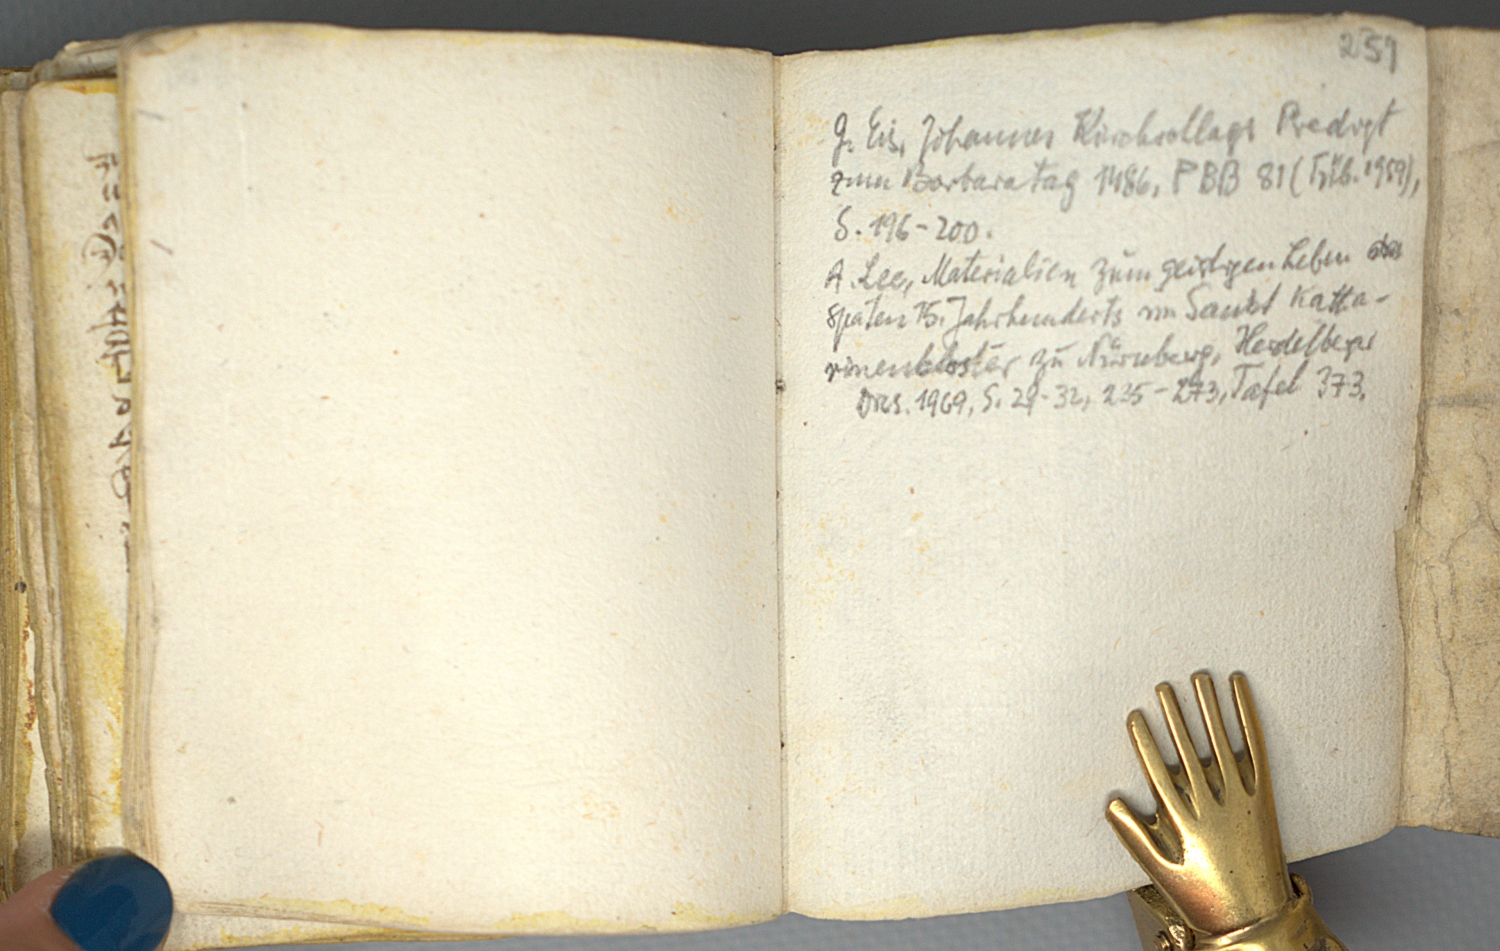 259
G. Eis, Johannes Kirchschlags Predigt
zum Barbaratag 1486, PBB 81 (Tüb. 1959),
S. 196-200.
A. Lee, Materialien zum geistigen Leben des
späten 15. Jahrhunderts im Sankt Katha-
rinenkloster zu Nürnberg, Heidelberger
Diss. 1969, S. 29-32, 235-273, Tafel 373.